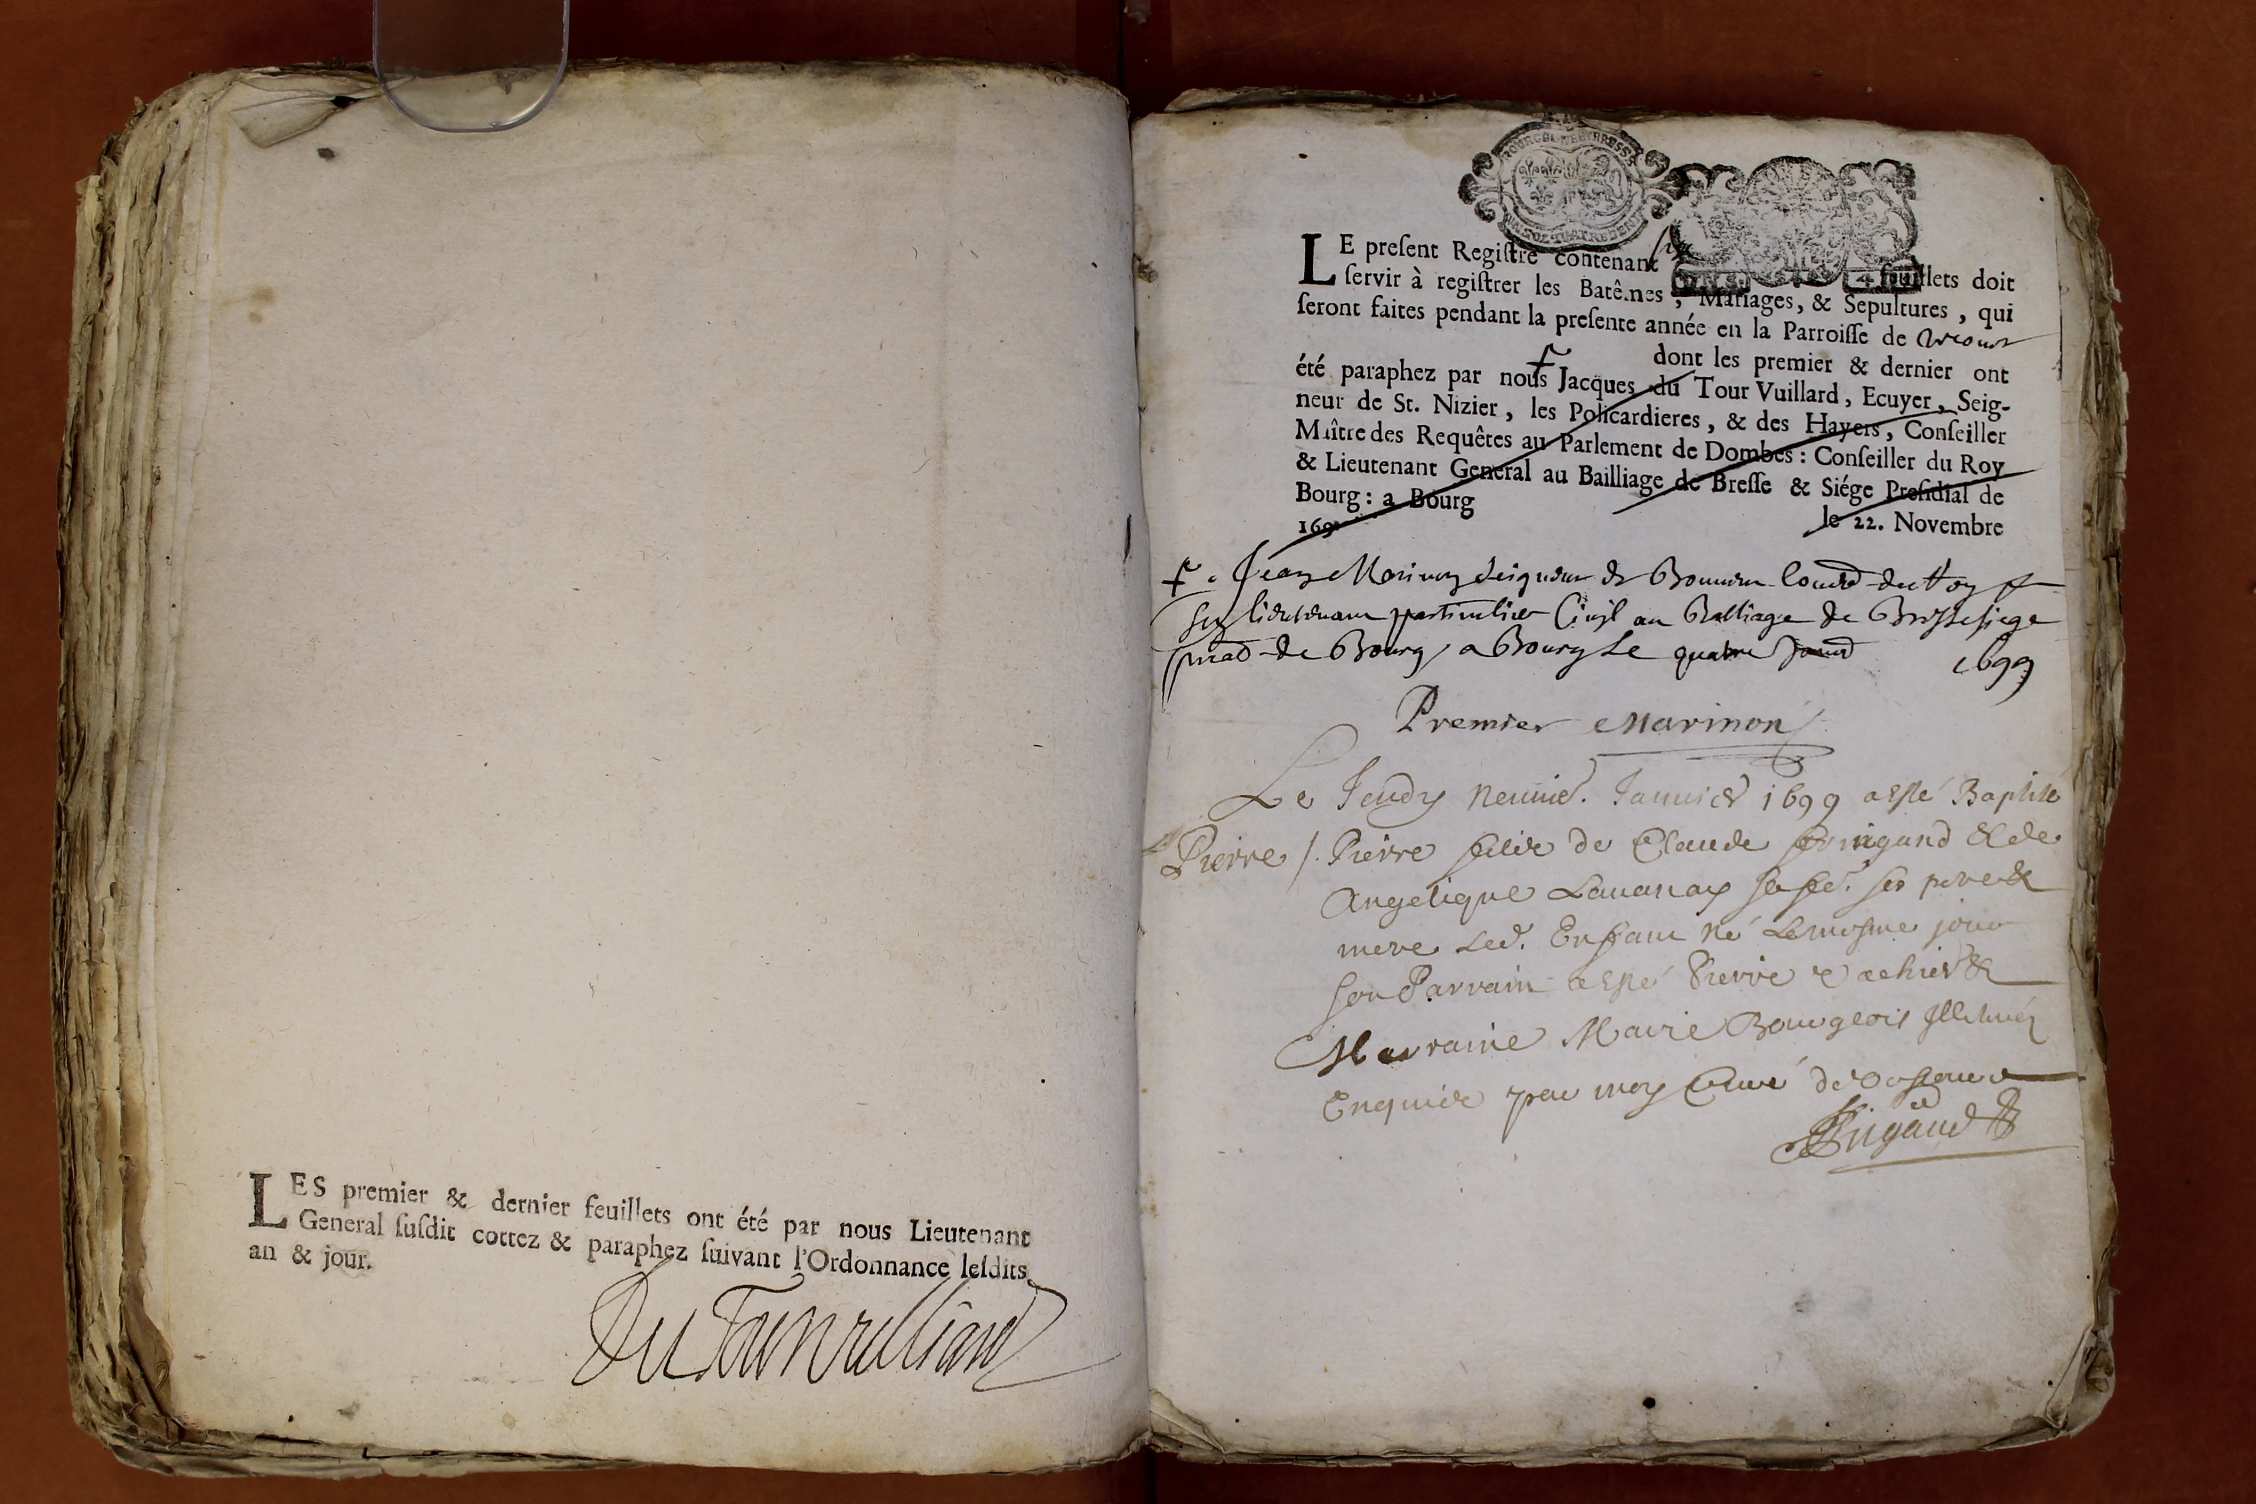 LES premier & dernier feuillets ont été par nous Lieutenant
General ſuſdit cottez & paraphez ſuivant l'Ordonnance leſdits
an & jour.
Du Tour Vuilliard
LE preſent Regiſtre contenant feuillets doit
ſervir à regiſtrer les Batêmes, Mariages, & Sepultures, qui
ſeront faites pendant la preſente année en la Parroiſſe de
dont les premier & dernier ont
été paraphez par nous Jacques du Tour Vuillard, Ecuyer, Seig-
neur de St. Nizier, les Policardieres, & des Hayers, Conſeiller
Maître des Requêtes au Parlement de Dombes: Conſeiller du Roy
& Lieutenant General au Bailliage de Breſſe & Siége Preſidial de
Bourg: a Bourg le 22. Novembre
169
Jean Marinon Seigneur de du Roy
lieutenant particulier Civil au Balliage de Bresse siege
de Bourg a Bourg Le quatre 1699
Premier Marinon
Le Jeudy Januier 1699 a esté Baptisé
Pierre /. Pierre de Claude &de
Angelique sa fe. ses pere &
mere Led. Enfant né Le mesme jour
son Parrain a esté Pierre &
Marraine Marie Bourgeois
Enquis par moy Curé de